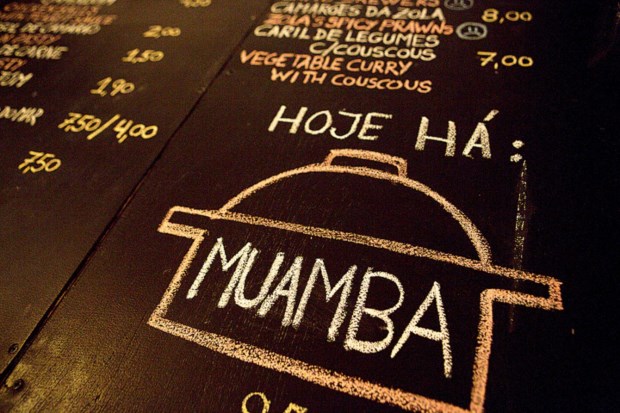 2,00
1,50
1,90
7,50/4,00
7,50
CAMARÕES DA ZOLA 8,00
ZOLA'S SPICY PRAWNS
CARIL DE LEGUMES
C/COUSCOUS 7,00
VEGETABLE CURRY
WITH COUSCOUS
HOJE HÁ:
MUAMBA